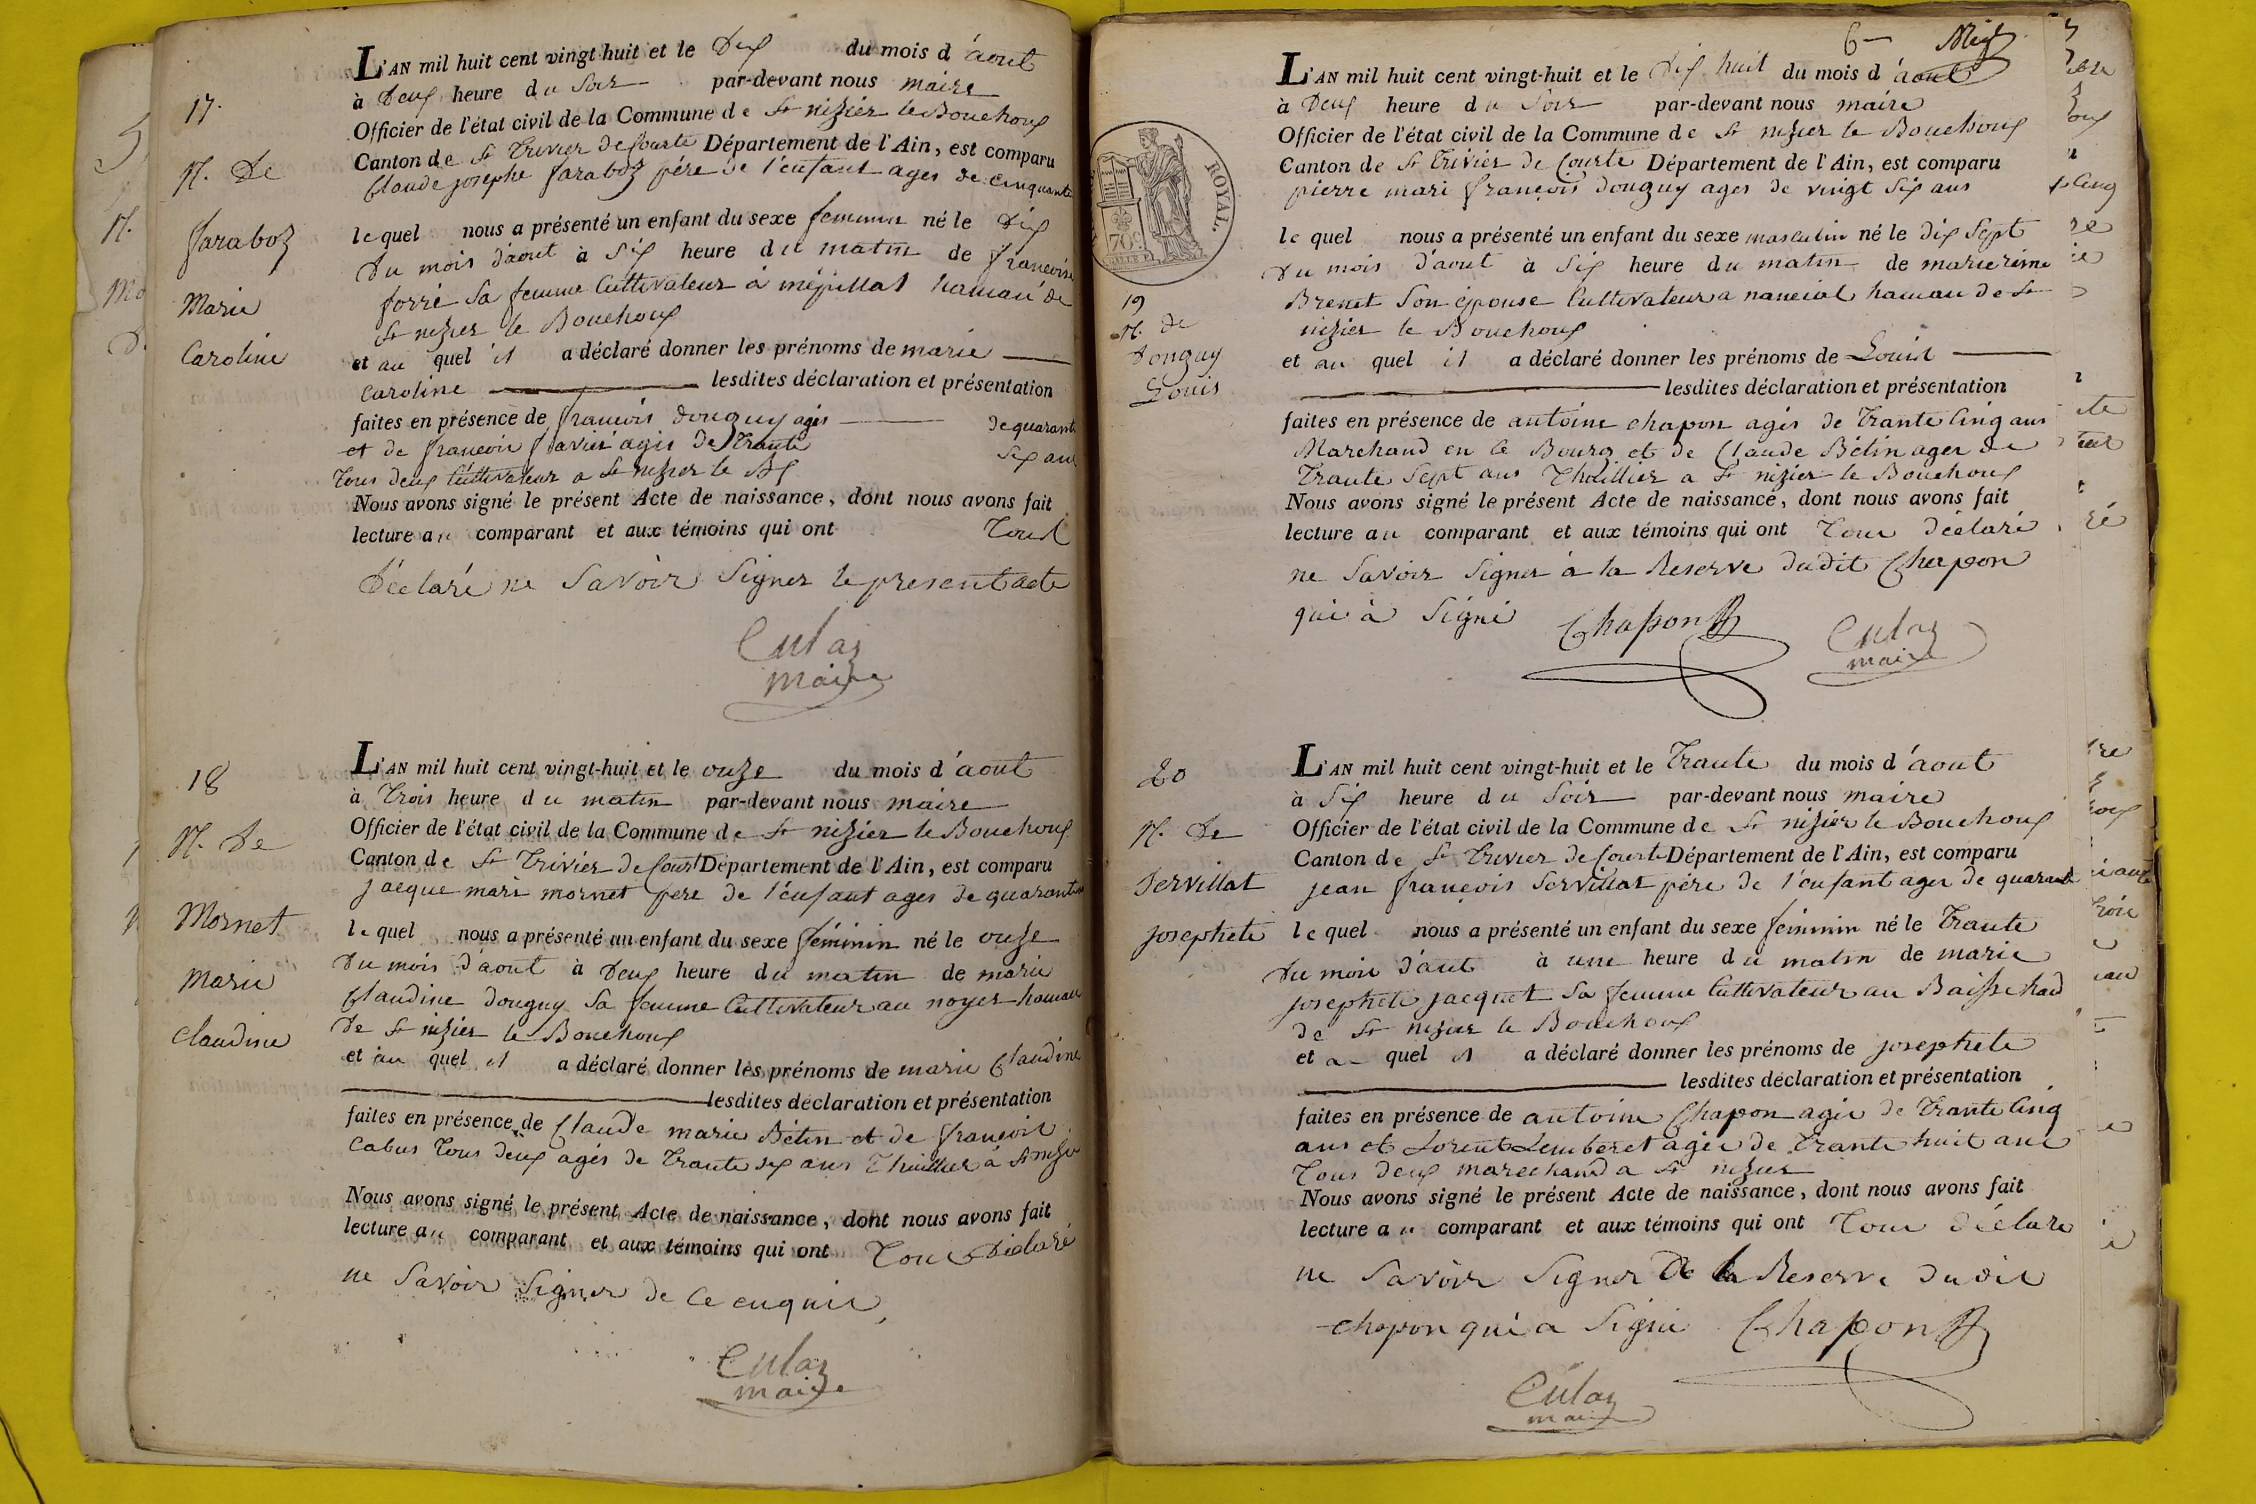 17.
N. De
faraboz
Marie
Caroline
L'AN mil huit cent vingt-huit et le Dix du mois d'aout
à Deux heure du Soir par-devant nous maire
Officier de l'état civil de la Commune de St nizier le Bouchoux
Canton de St Trivier de Courte Département de l'Ain, est comparu
Claude josephe faraboz père de l'enfant ages de cinquante
lequel nous a présenté un enfant du sexe feminin né le Dix
Du mois d'aout à Six heure du matin de francoise
forré Sa femme Cultivateur à mépillat hamau de
St nizier le Bouchoux
et au quel il a déclaré donner les prénoms de marie
Caroline lesdites déclaration et présentation
faites en présence de francois douguy agés de quarante
et de francois favier agés de Trante Six ans
Tous deux Cultivateur a St nizier le Bx
Nous avons signé le présent Acte de naissance, dont nous avons fait
lecture au comparant et aux témoins qui ont Tous
Déclaré ne Savoir Signer le present acte
Culaz
maire
18
N. De
Mornet
Marie
Claudine
L'AN mil huit cent vingt-huit et le onze du mois d'aout
à Trois heure du matin par-devant nous maire
Officier de l'état civil de la Commune de St nizier le Bouchoux
Canton de St Trivier de Court Département de l'Ain, est comparu
jacque mari mornet père de l'enfant ages de quarante
lequel nous a présenté un enfant du sexe féminin né le onze
Du mois d'aout à Deux heure du matin de marie
Claudine douguy Sa femme Cultivateur au noyer hamau
De St nizier le Bouchoux
et au quel il a déclaré donner les prénoms de marie Claudine
lesdites déclaration et présentation
faites en présence de Claude marie Bétin et de francois
Cabus Tous deux agés de Trante six ans Thuillier à St nizier
Nous avons signé le présent Acte de naissance, dont nous avons fait
lecture au comparant et aux témoins qui ont Tous Déclaré
ne Savoir Signer de ce enquis,
Culaz
maire
6
ROYAL.
70c.
19
N. de
Douguy
Louis
L'AN mil huit cent vingt-huit et le Dix huit du mois d'aout
à Deux heure du Soir par-devant nous maire
Officier de l'état civil de la Commune de St nizier le Bouchoux
Canton de St Trivier de Courte Département de l'Ain, est comparu
pierre mari françois douguy ages de vingt Six ans
lequel nous a présenté un enfant du sexe masculin né le dix Sept
Du mois d'aout à Six heure du matin de marie
Brenet Son épouse Cultivateur a nancial hamau de St
nizier le Bouchoux
et au quel il a déclaré donner les prénoms de Louis
lesdites déclaration et présentation
faites en présence de antoine chapon agés de Trante Cinq ans
Marchand en ce Bourg et de Claude Bétin ages de
Trante Sept ans Thuillier a St nizier le Bouchoux
Nous avons signé le présent Acte de naissance, dont nous avons fait
lecture au comparant et aux témoins qui ont Tous déclaré
ne Savoir Signer à la Reserve dudit Chapon
qui à Signé Chapon
Culaz
maire
20
N. De
Servillat
josephete
L'AN mil huit cent vingt-huit et le Trante du mois d'aout
à Six heure du Soir par-devant nous maire
Officier de l'état civil de la Commune de St nizier le Bouchoux
Canton de St Trivier de Courte Département de l'Ain, est comparu
jean françois Servillat père de l'enfant ages de quarante
lequel nous a présenté un enfant du sexe féminin né le Trante
Du mois d'aut à une heure du matin de marie
josephete jacquet Sa femme Cultivateur au
de St nizier le Bouchoux
et a quel il a déclaré donner les prénoms de josephete
lesdites déclaration et présentation
faites en présence de antoine Chapon agés de Trante Cinq
ans et Lorent agés de Trante huit ans
Tous deux marechand a St nizier
Nous avons signé le présent Acte de naissance, dont nous avons fait
lecture au comparant et aux témoins qui ont Tous déclaré
ne Savoir Signer De la Reserve dudit
chapon qui a Signé Chapon
Culaz
maire